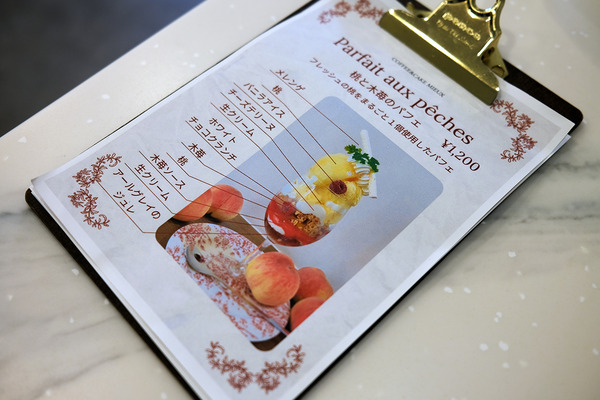 COFFEE&CAKE MIEUX
Parfait aux pêches
桃と木苺のパフェ ¥1,200
フレッシュの桃をまるごと1個使用したパフェ
メレンゲ
桃
バニラアイス
チーズテリーヌ
生クリーム
ホワイト
チョコクランチ
木苺
桃
木苺ソース
生クリーム
アールグレイの
ジュレ